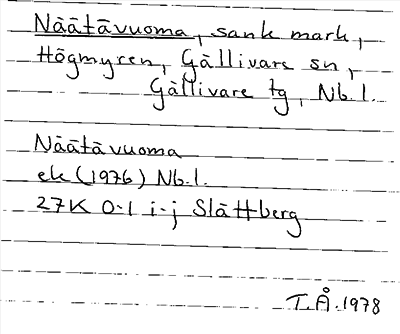 Näätävuoma, sank mark,
Högmyren, Gällivare sn,
Gällivare tg, Nb.l.
Näätävuoma
ek (1976) Nb.l.
27K 0-1 i-j Slättberg
T.Å. 1978